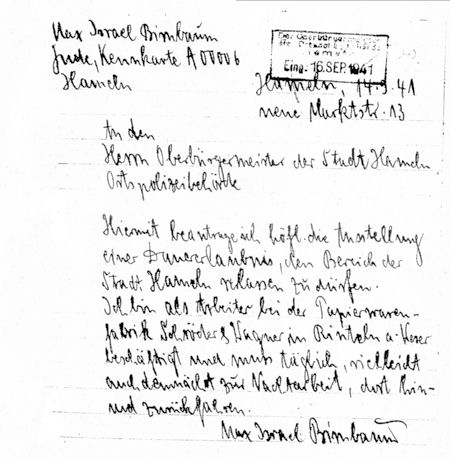 Max Israel Birnbaum
Jude, Kennkarte A 00006
Hameln
Der Oberbürgermeister
Eing. 16. SEP. 1941
Hameln, 14.9.41
neue Marktstr. 13
An den
Herrn Oberbürgermeister der Stadt Hameln
Ortspolizeibehörde
Hiermit beantrage ich höfl. die Ausstellung
einer Dauererlaubnis, den Bereich der
Stadt Hameln verlassen zu dürfen.
Ich bin als Arbeiter bei der Papierwaren-
fabrik Schröder & Wagner in Rinteln a. Weser
beschäftigt und muss täglich, vielleicht
auch demnächst zur Nachtarbeit, dort hin-
und zurückfahren.
Max Israel Birnbaum